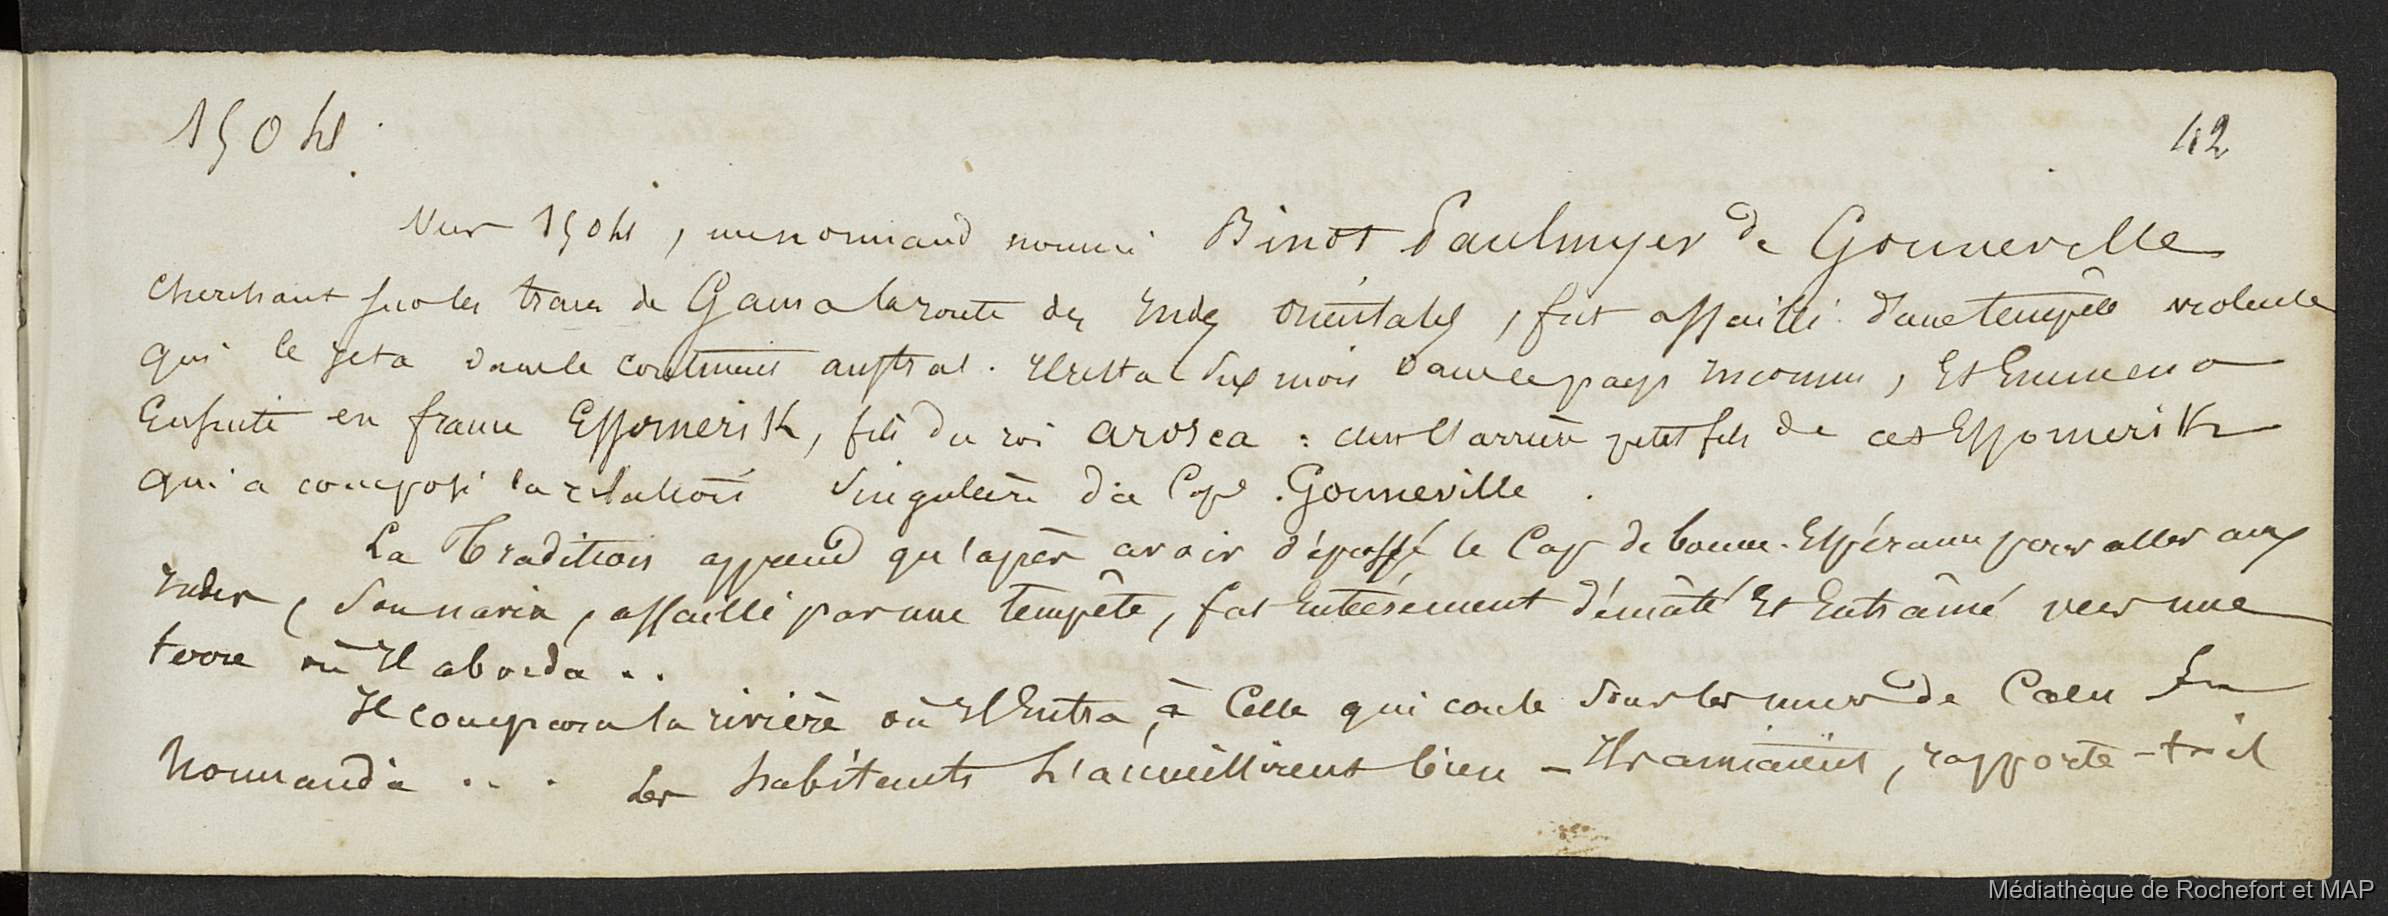 1504.
42
Vers 1504, un normand nommé Binot Paulmyer de Gonneville
cherchant sur les traces de Gama la route des Indes Orientales, fut assailli d'une tempête violente
qui le jeta dans le continent austral. Il resta six mois dans ce pays inconnu, Et Emmena
Ensuite en france Essomerik, fils du roi arosca : c'est l'arrière petit fils de cet Essomerik
qui a composé la relation singulière du Cap. Gonneville.
La Tradition apprend qu'après avoir dépassé le Cap de bonne-Espérance pour aller aux
Indes, son navire, assailli par une tempête, fut Entièrement démâté Et Entraîné vers une
terre où Il aborda..
Il compara la rivière où Il Entra, à Celle qui coule sous les murs de Caen En
Normandie ... Les habitants l'accueillirent bien - Ils aimaient, rapporte-t-il
Médiathèque de Rochefort et MAP